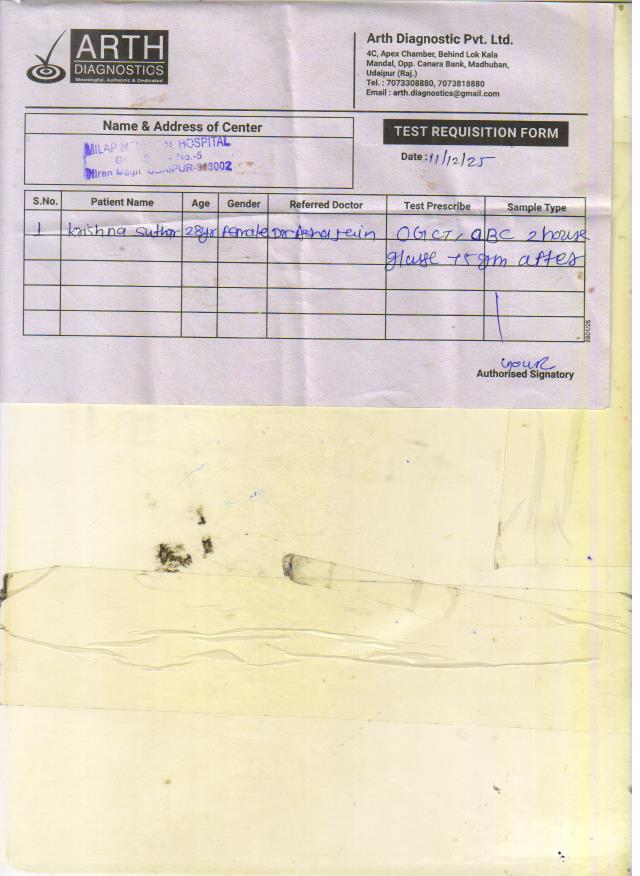 ARTH
DIAGNOSTICS
Meaningful, Authentic & Dedicated
Arth Diagnostic Pvt. Ltd.
4C, Apex Chamber, Behind Lok Kala
Mandal, Opp. Canara Bank, Madhuban,
Udaipur (Raj.)
Tel. : 7073308880, 7073818880
Email : arth.diagnostics@gmail.com
Name & Address of Center
MILAP HOSPITAL
No.-5
Hiran UDAIPUR-313002
TEST REQUISITION FORM
Date : 11/12/25
S.No. Patient Name Age Gender Referred Doctor Test Prescribe Sample Type
1 Krishna Suthar 28yr female Dr Asha jein OGCT, 2 house
75 gm after
Authorised Signatory